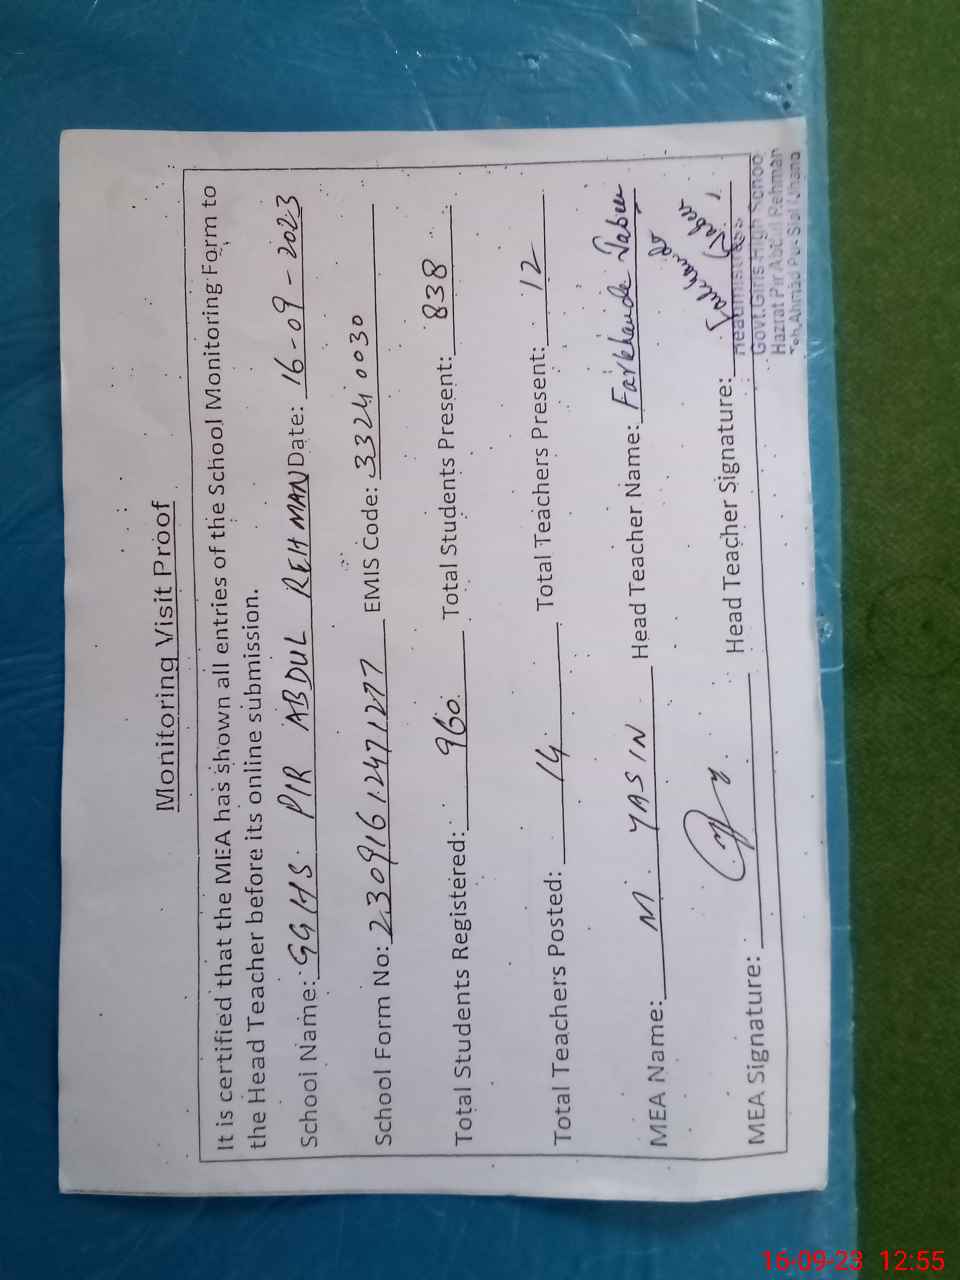 Monitoring Visit Proof
It is certified that the MEA has shown all entries of the School Monitoring Form to
the Head Teacher before its online submission.
School Name: GGHS. PIR ABDUL REHMAN Date: 16-09-2023
School Form No: 23091612471277 EMIS Code: 33240030
Total Students Registered: 960 Total Students Present: 838
Total Teachers Posted: 14 Total Teachers Present: 12
MEA Name: M. YASIN Head Teacher Name: Farkhanda Jabeen
MEA Signature: Head Teacher Signature: Farkhanda Jabeen
Headmistress
Govt. Girls High School
Hazrat Pir Abdul Rehman
Teh. Ahmad Pur Sial Jhang
16-09-23 12:55